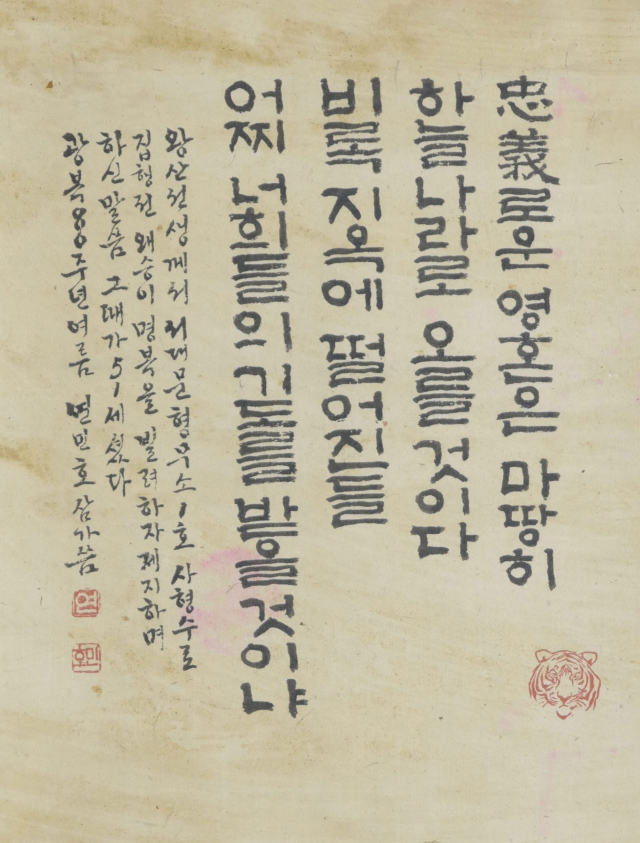 忠義로운 영혼은 마땅히
하늘나라로 오를것이다
비록 지옥에 떨어진들
어찌 너희들의 기도를 받을것이냐
왕산선생께서 서대문형무소 1호 사형수로
집형전 왜승이 명복을 빌려하자 제지하며
하신 말씀 그때가 51세셨다
광복80주년여름 연민호 삼가씀